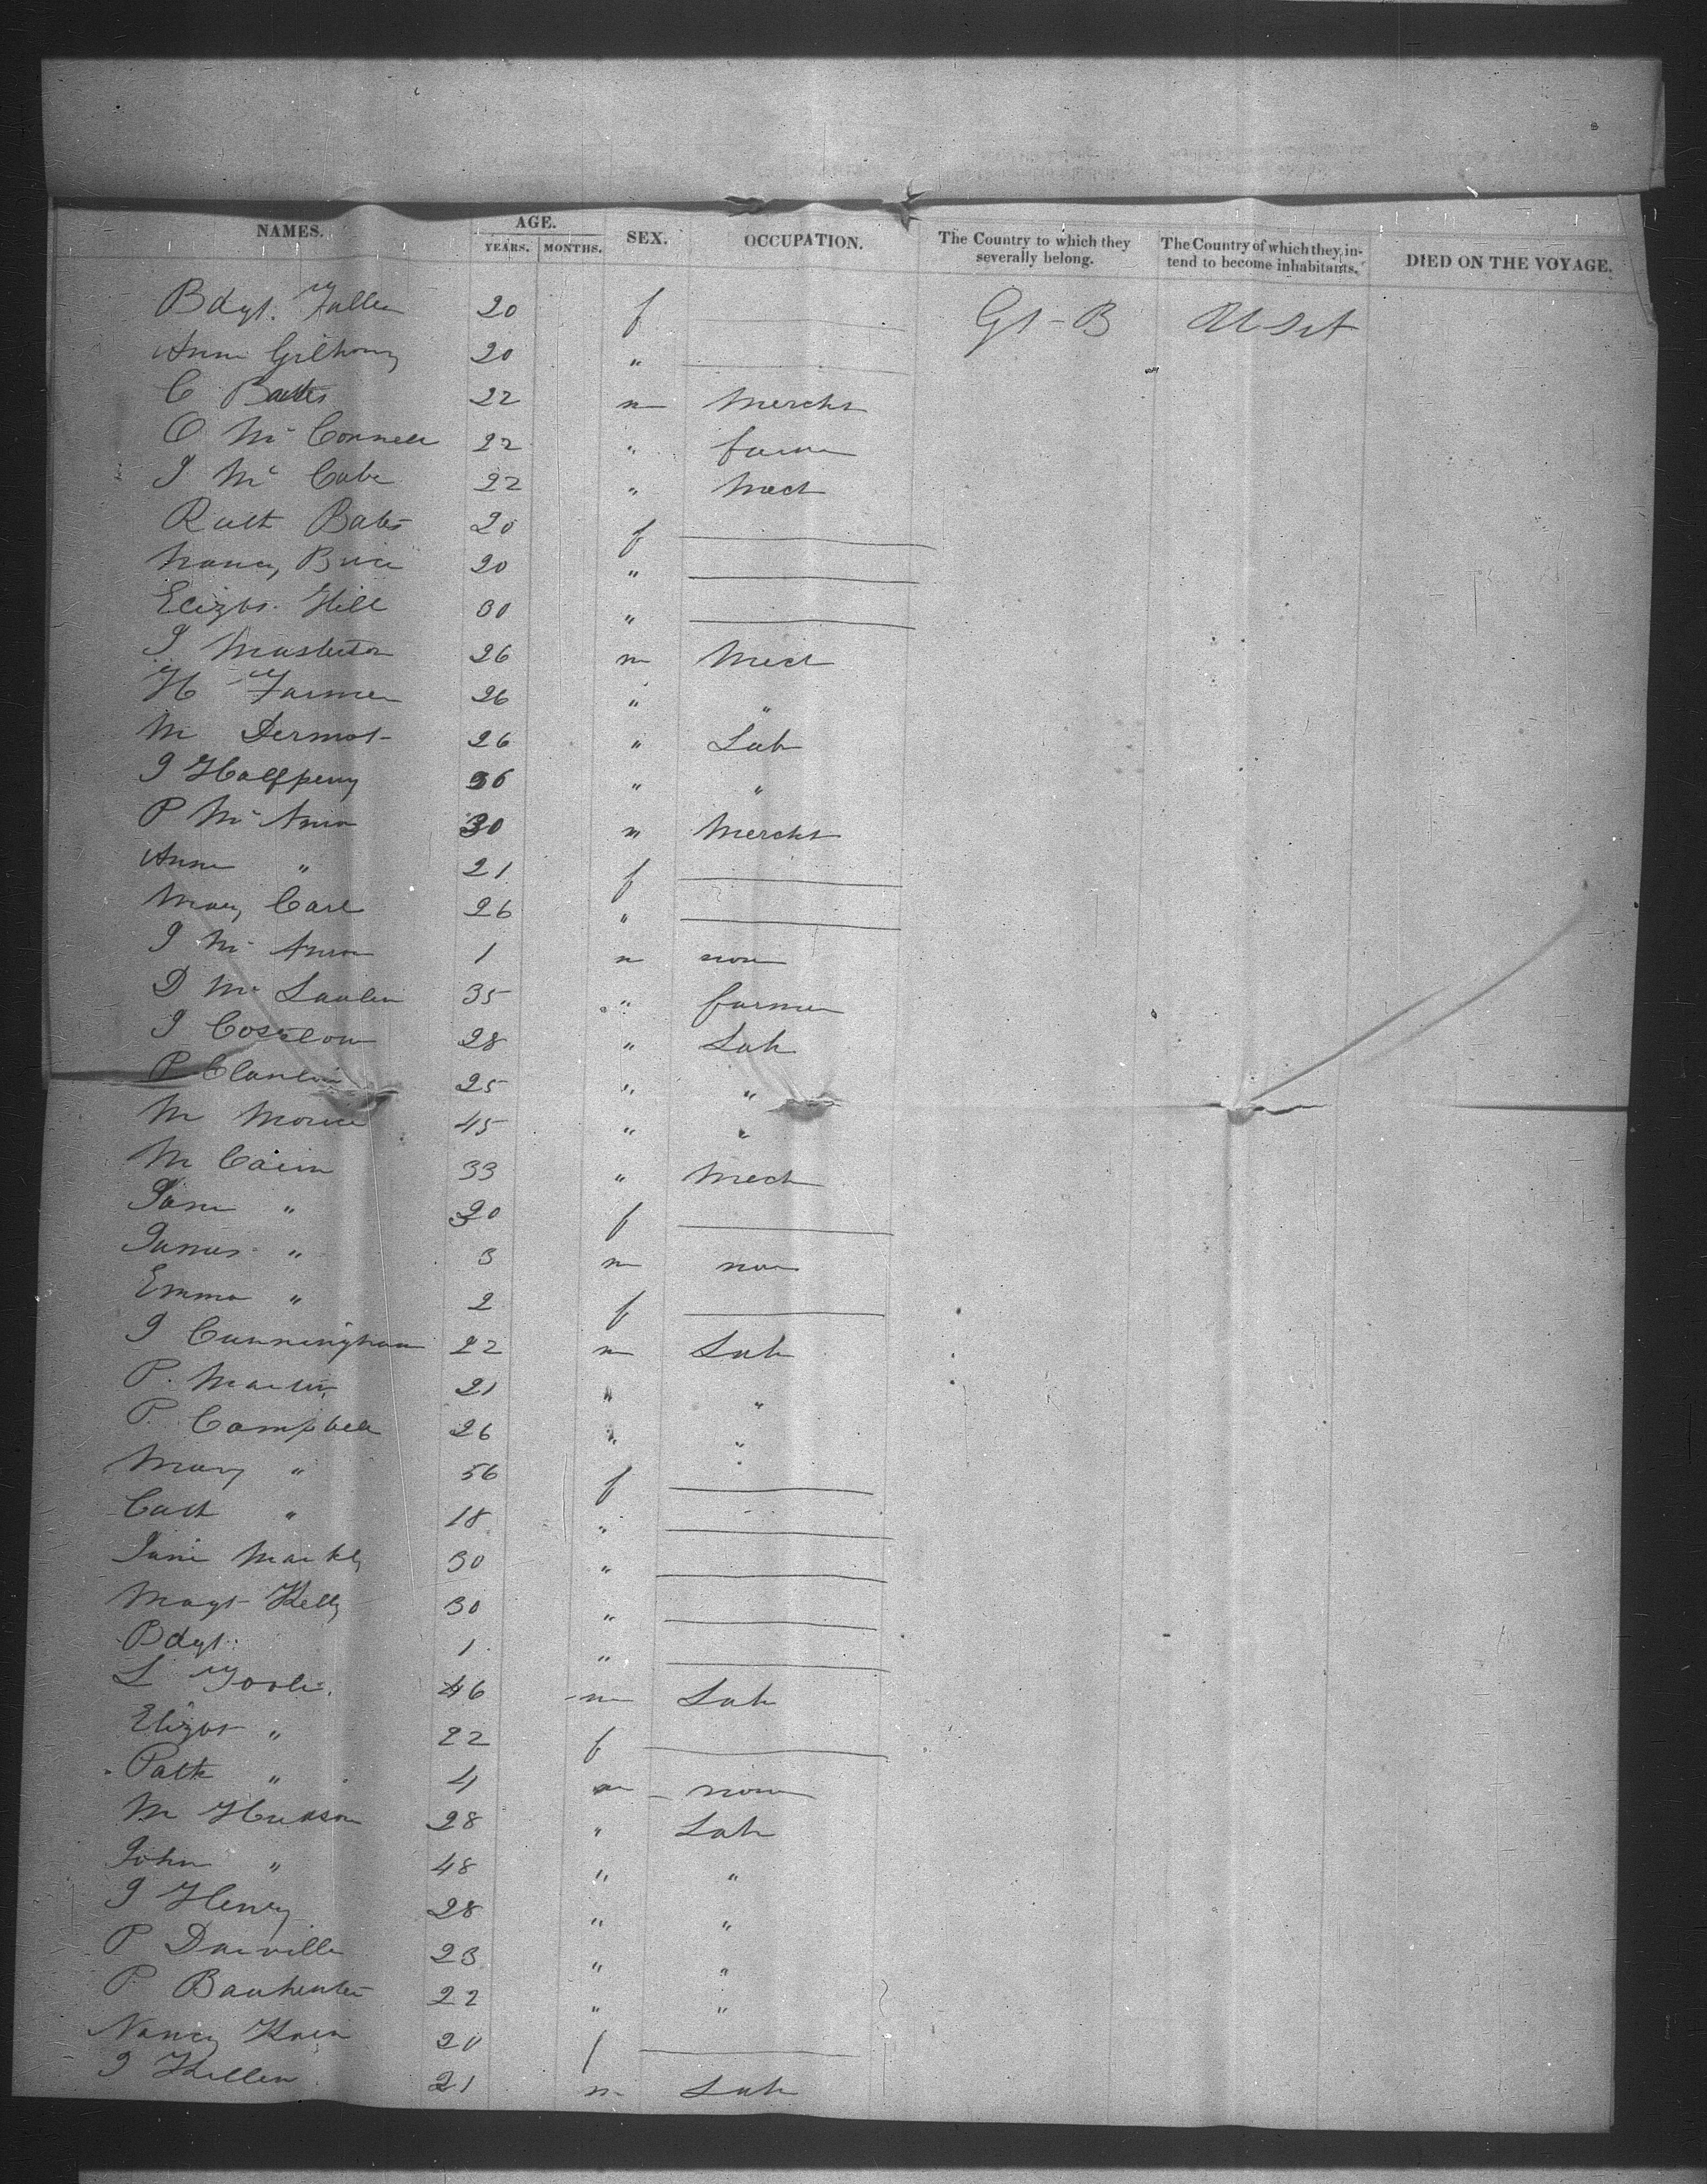 NAMES. AGE. YEARS. MONTHS. SEX. OCCUPATION. The Country to which they severally belong. The Country of which they intend to become inhabitants. DIED ON THE VOYAGE.
Bdgt. Fallen 20 f Gt-B U Sts
Ann Gilhony 20 "
C Bates 22 m Mercht
O Mc Connell 22 " farm
J Mc Cabe 22 " Mech
Ruth Bates 20 f
Nancy Brice 20 "
Elizbt. Hill 30 "
J Masterton 26 m Mech
H Farmer 26 " "
M Dermot 26 " Lab
J Halfpenny 36 " "
P Mc 30 " Mercht
Ann " 21 f
Mary Carl 26 "
J Mc 1 m non
D Mc Laulin 35 " farmer
J Costelow 28 " Lab
P 25 " "
M 45 " "
M Cairn 33 " Mech
Jane " 20 f
James " 3 m non
Emma " 2 f
J Cunningham 22 m Lab
P. Martin 21 " "
P. Campbell 26 " "
Mary " 56 f
Cath " 18 "
Jane Markly 30 "
Magt Kelly 30 "
Bdgt. 1 "
L Toole. 46 m Lab
Elizbt " 22 f
Patk " 4 m non
M Hudson 28 " Lab
John " 48 " "
J Henry 28 " "
P Darville 23 " "
P 22 " "
Nancy 20 f
J Killen 21 m Lab